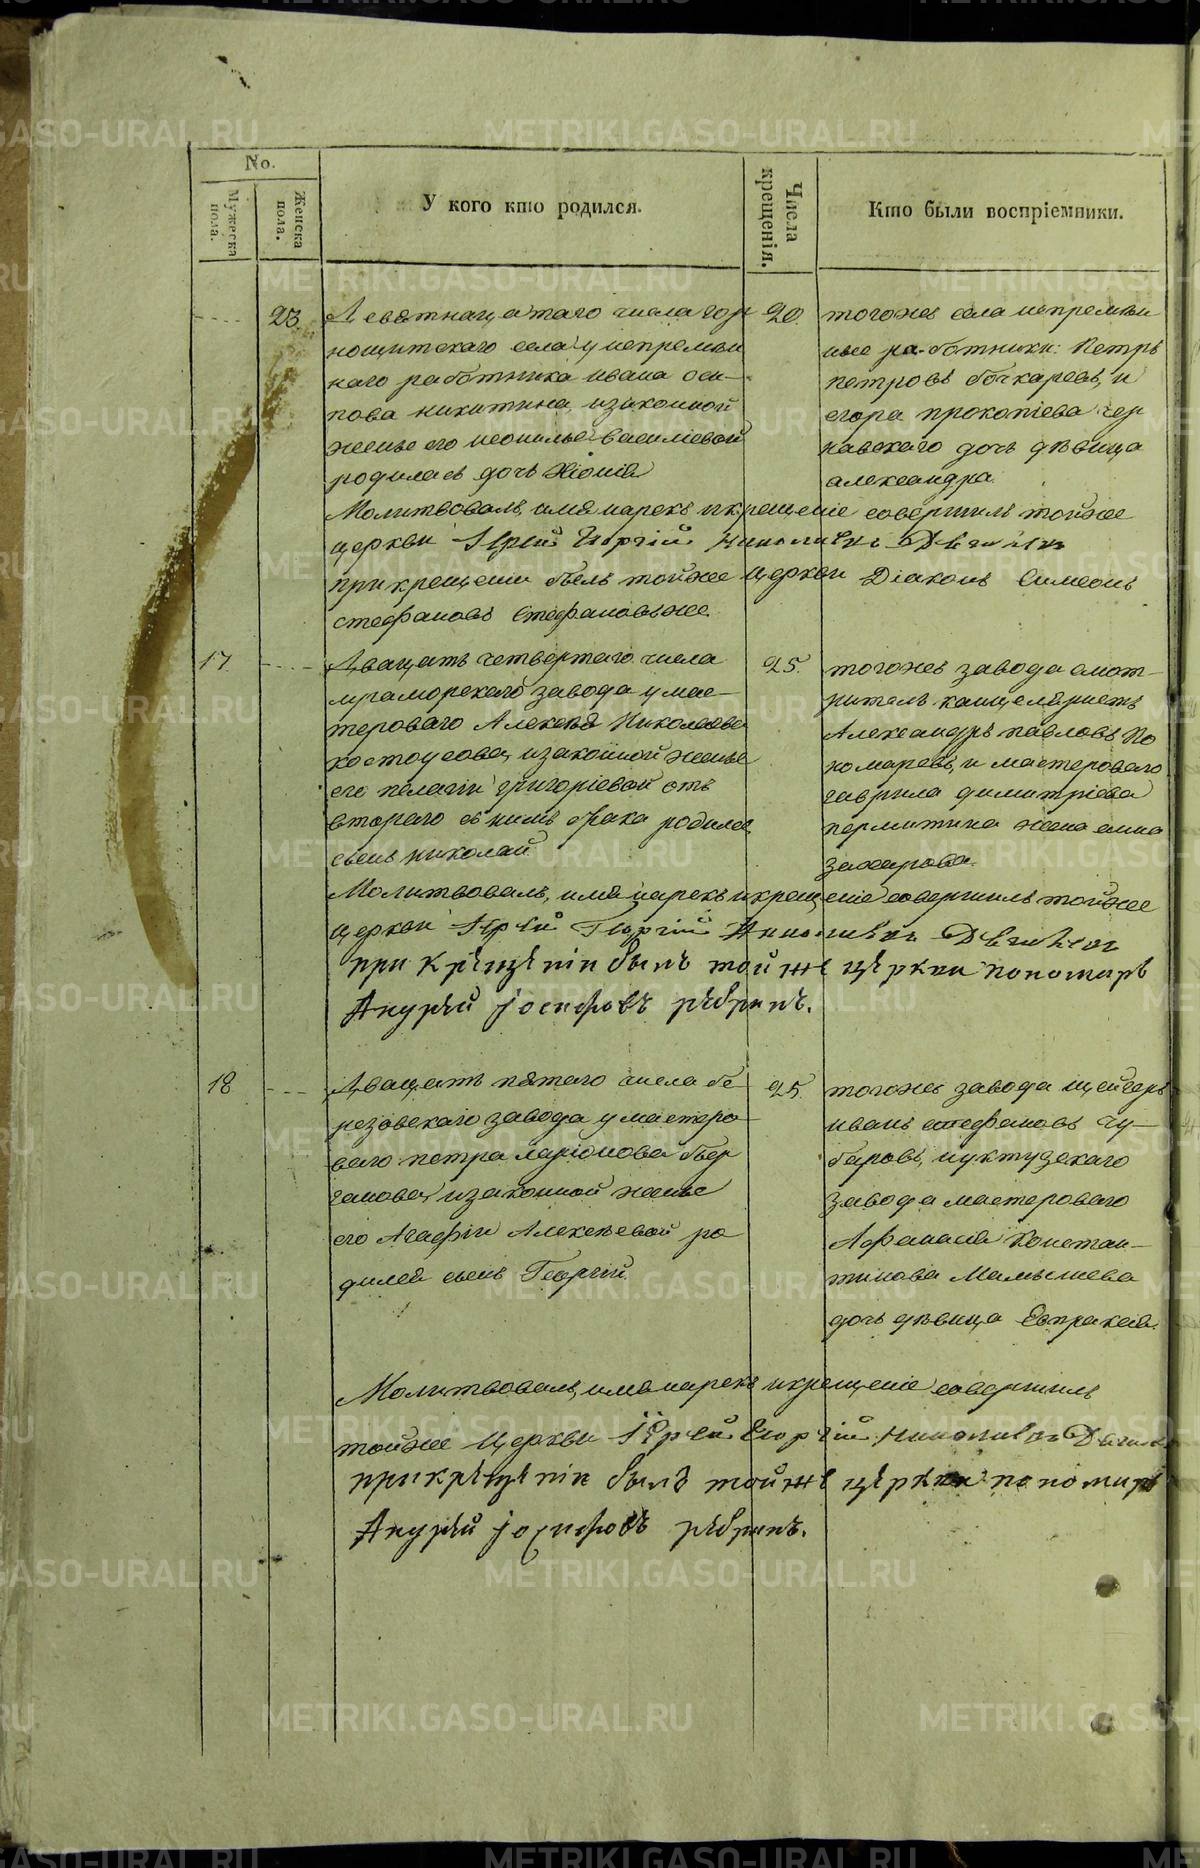 No.
Мужеска пола.
Женска пола.
У кого кто родился.
Числа крещенія.
Кто были воспріемники.
23.
Девятнацатаго числа гор
нощитскаго села у непремѣн
наго работника ивана оси-
пова никитина, изаконной
женые его неонилы василіевой
родилась дочь Хіонія
20.
тогожъ села непремѣн
ные ра-ботники: Петръ
петровъ бочкаревъ, и
егора прокопіева чер
навскаго дочь дѣвица
александра.
Молитвовалъ, имя нарекъ и крещеніе совершилъ тойже
церкви Іерей Георгій
при крещеніи былъ тойже церкви Діаконъ Симеонъ
стефановъ Стефановъже
17
Дватцать четвертаго числа
мраморскаго завода у мас-
тероваго Алексея Николаева
костоусова, изаконной женые
его пелагіи григоріевой отъ
втораго съ нимъ брака родился
сынъ николай
25.
тогожъ завода смот-
ритель канцеляристъ
Александръ павловъ По
номаревъ, и мастероваго
гаврила димитріева
пермитина жена анна
захарова.
Молитвовалъ, имя нарекъ и крещеніе совершилъ тойже
церкви Іерей Георгій
при крещеніи былъ той же церкви пономарь
Андрей Іосифовъ
18
Дватцать пятаго числа бе
резовскаго завода у мастеро
ваго петра ларіонова
изаконной женые
его Агафіи Алексѣевой ро
дился сынъ Георгій.
25.
тогожъ завода
иванъ стефановъ Чу-
баровъ, и уктузскаго
завода мастероваго
Афанасія Констан-
тинова Мамышева
дочь дѣвица Евпраксія.
Молитвовалъ, имя нарекъ и крещеніе совершилъ
тойже Церкви Іерей Георгій
при крещеніи былъ той же церкви пономарь
Андрей Іосифовъ
METRIKI.GASO-URAL.RU